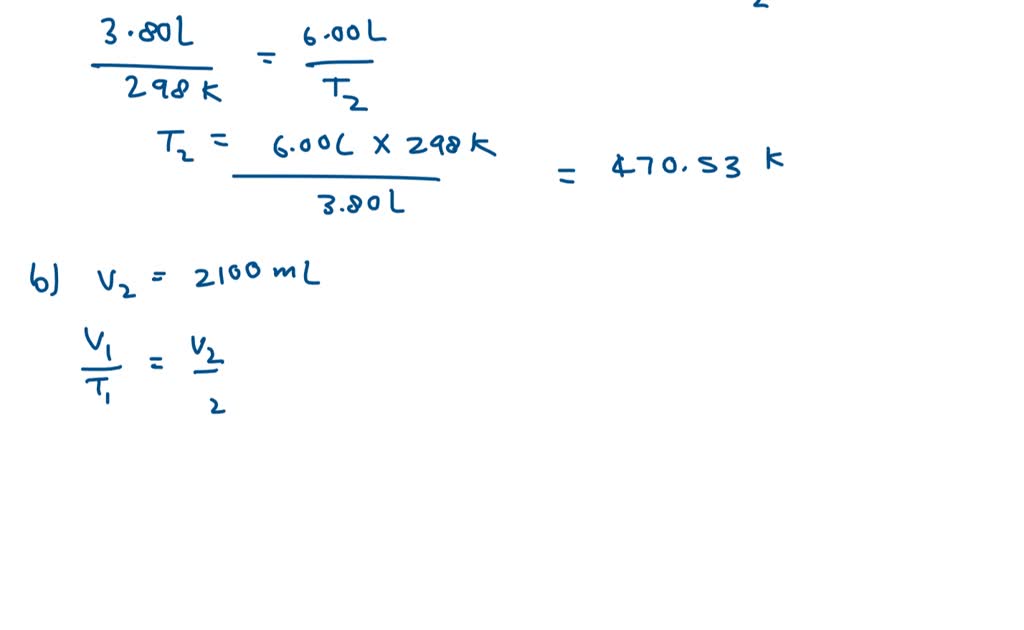 3.80L / 298 K = 6.00L / T₂
T₂ = 6.00L × 298 K / 3.80L = 470.53 K
b) V₂ = 2100 mL
V₁ / T₁ = V₂ / ₂